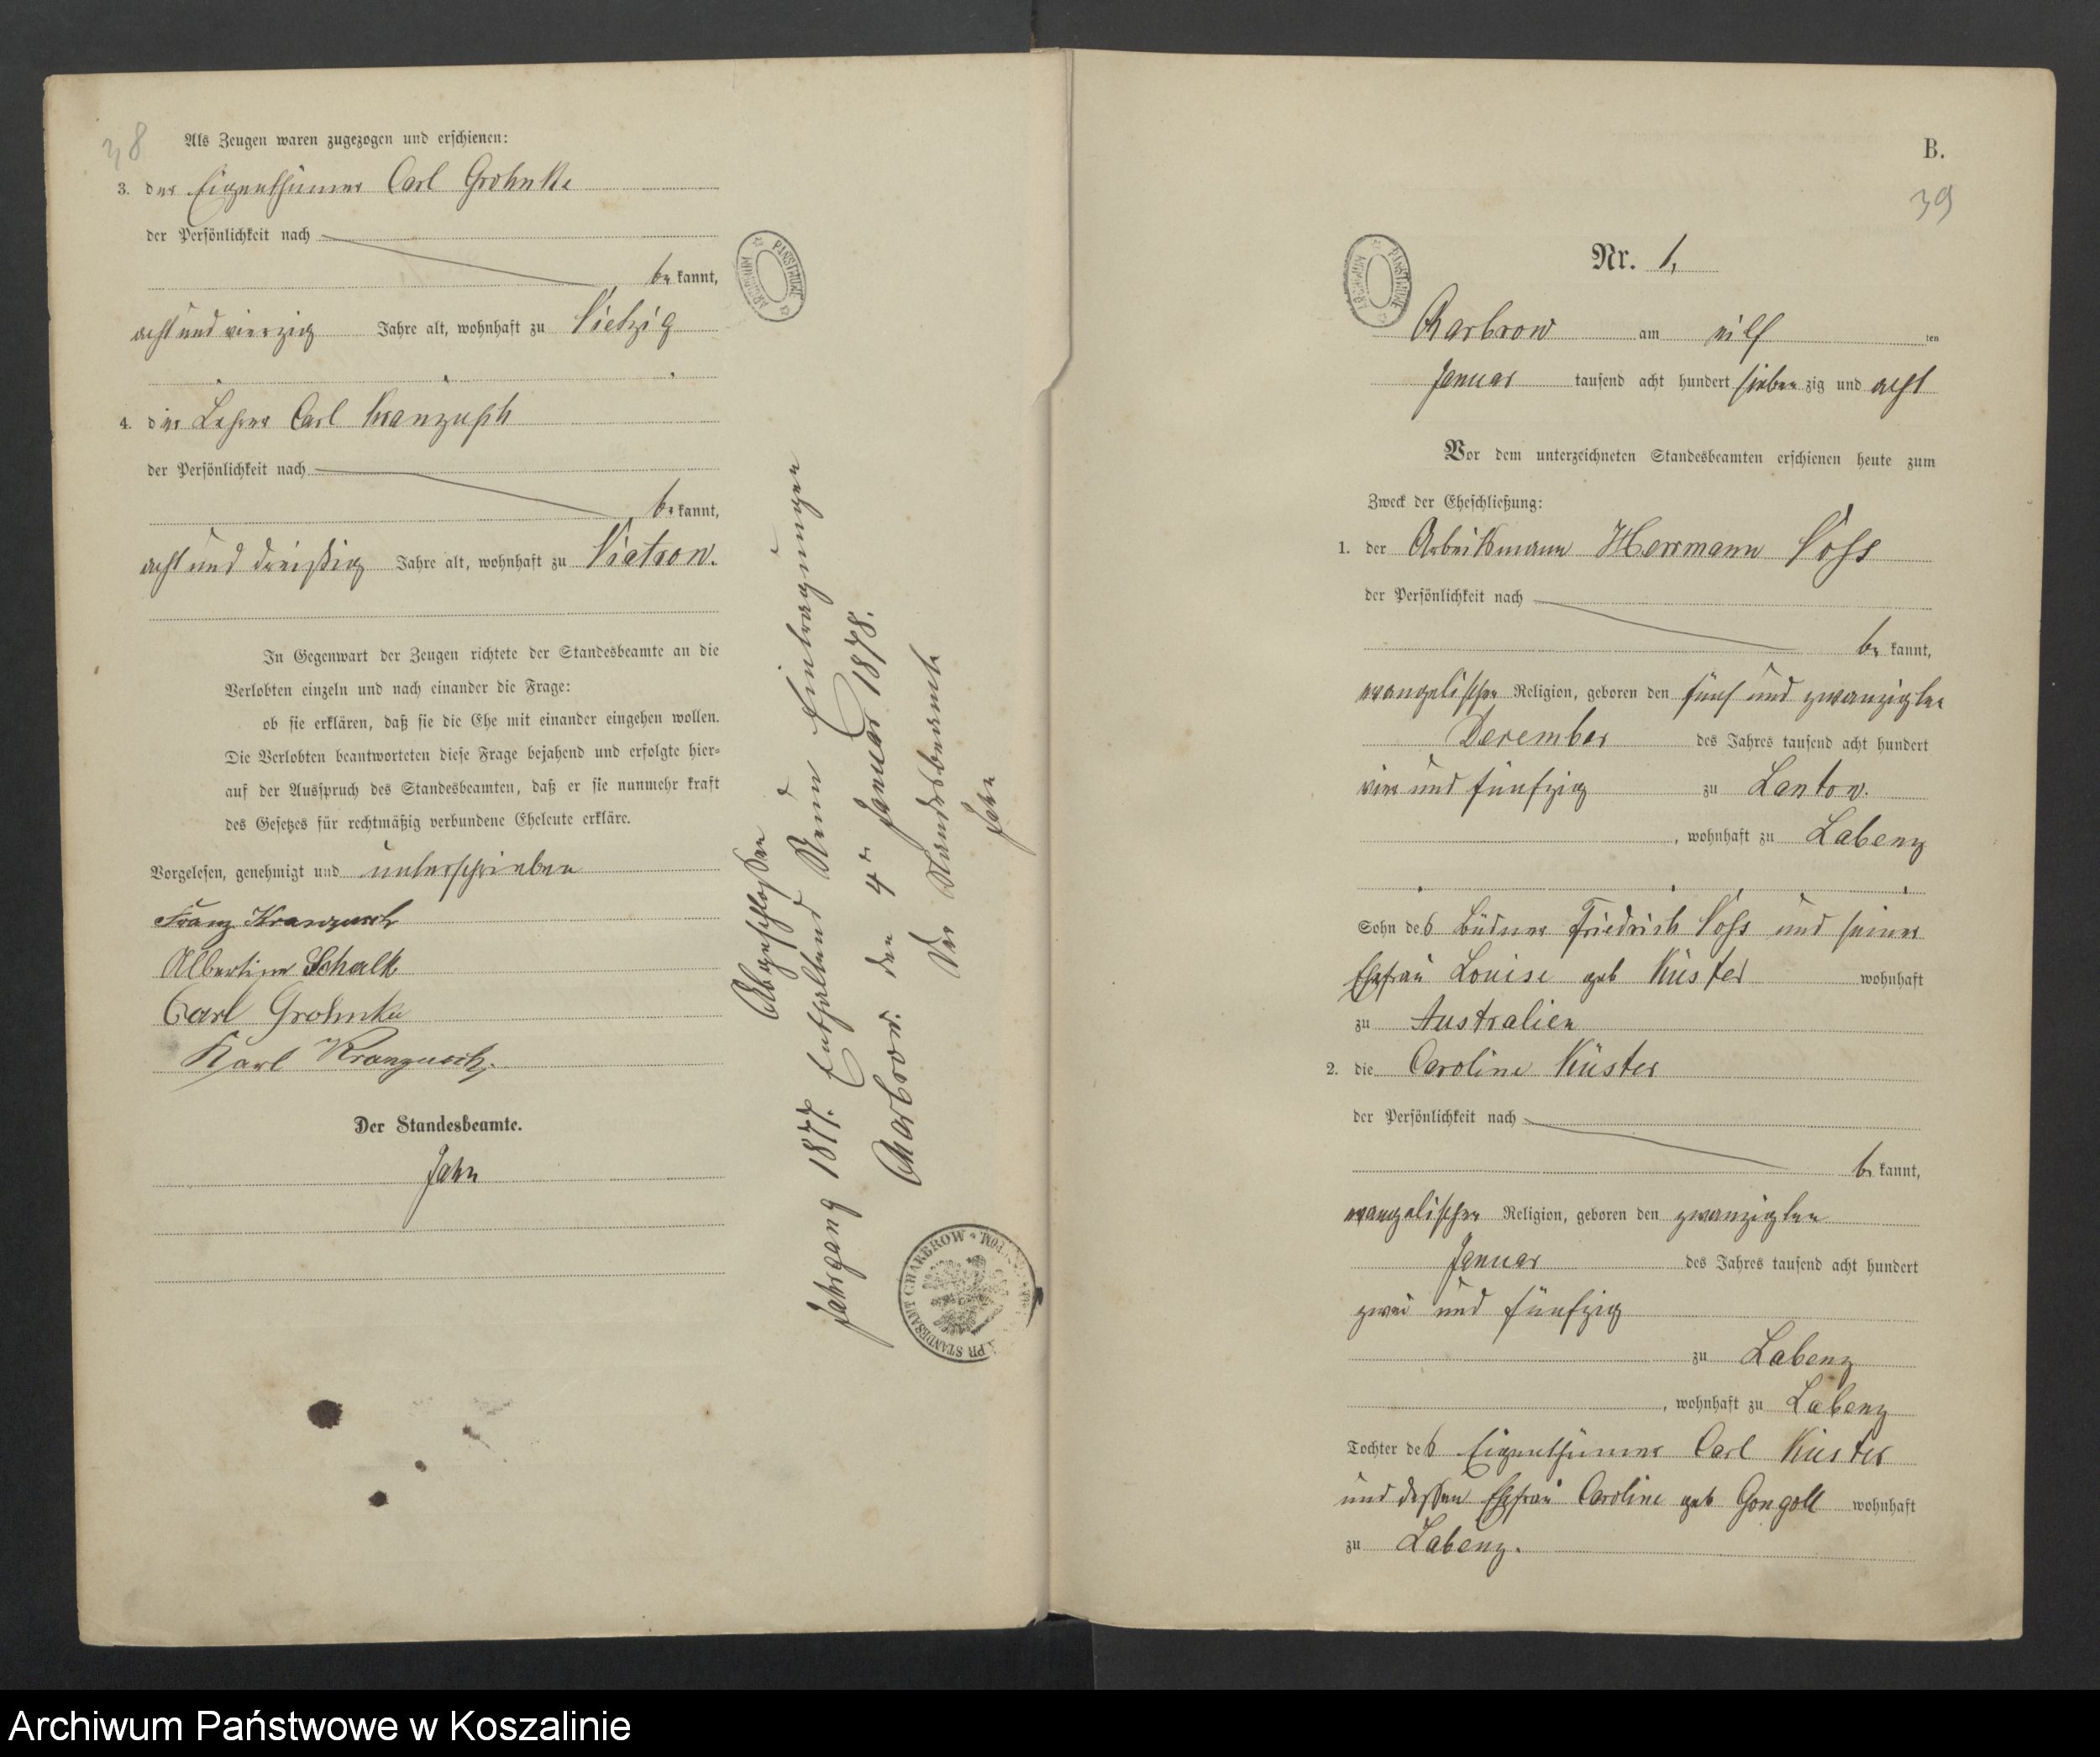 38
Als Zeugen waren zugezogen und erschienen:
3. der Eigenthümer Carl Grohnke
der Persönlichkeit nach
be kannt,
acht und vierzig Jahre alt, wohnhaft zu Vietzig
4. der Lehrer Carl Kranzusch
der Persönlichkeit nach
be kannt,
acht und dreißig Jahre alt, wohnhaft zu Vietrow.
In Gegenwart der Zeugen richtete der Standesbeamte an die
Verlobten einzeln und nach einander die Frage:
ob sie erklären, daß sie die Ehe mit einander eingehen wollen.
Die Verlobten beantworteten diese Frage bejahend und erfolgte hier-
auf der Ausspruch des Standesbeamten, daß er sie nunmehr kraft
des Gesetzes für rechtmäßig verbundene Eheleute erkläre.
Vorgelesen, genehmigt und unterschrieben
Franz Kranzusch
Albertine Schalk
Carl Grohnke
Karl Kranzusch.
Der Standesbeamte.
Jahn
Abgeschlossen
Jahrgang 1877. Enthaltend Neun Eintragungen
Charbrow. den 4ten Januar 1878.
Der Standesbeamte
Jahn
PR STANDESAMT CHARBROW
ARCHIWUM PAŃSTWOWE
B.
39
ARCHIWUM PAŃSTWOWE
Nr. 1.
Charbrow am eilf ten
Januar tausend acht hundert sieben zig und acht
Vor dem unterzeichneten Standesbeamten erschienen heute zum
Zweck der Eheschließung:
1. der Arbeitsmann Herrmann Voss
der Persönlichkeit nach
be kannt,
evangelischer Religion, geboren den fünf und zwanzigten
Dezember des Jahres tausend acht hundert
vier und fünfzig zu Lantow.
, wohnhaft zu Labenz
Sohn des Büdner Friedrich Voss und seiner
Ehefrau Louise geb Küster wohnhaft
zu Australien
2. die Caroline Küster
der Persönlichkeit nach
be kannt,
evangelischer Religion, geboren den zwanzigten
Januar des Jahres tausend acht hundert
zwei und fünfzig
zu Labenz
, wohnhaft zu Labenz
Tochter des Eigenthümer Carl Küster
und dessen Ehefrau Caroline geb Gongoll wohnhaft
zu Labenz.
Archiwum Państwowe w Koszalinie